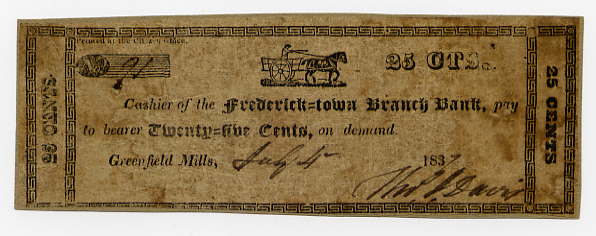 Printed at the Citizen Office.
25 CENTS
No 21
25 CTS.
25 CENTS
Cashier of the Frederick=town Branch Bank, pay
to bearer Twenty=five Cents, on demand.
Greenfield Mills, July 4 1837
Thos J Davis